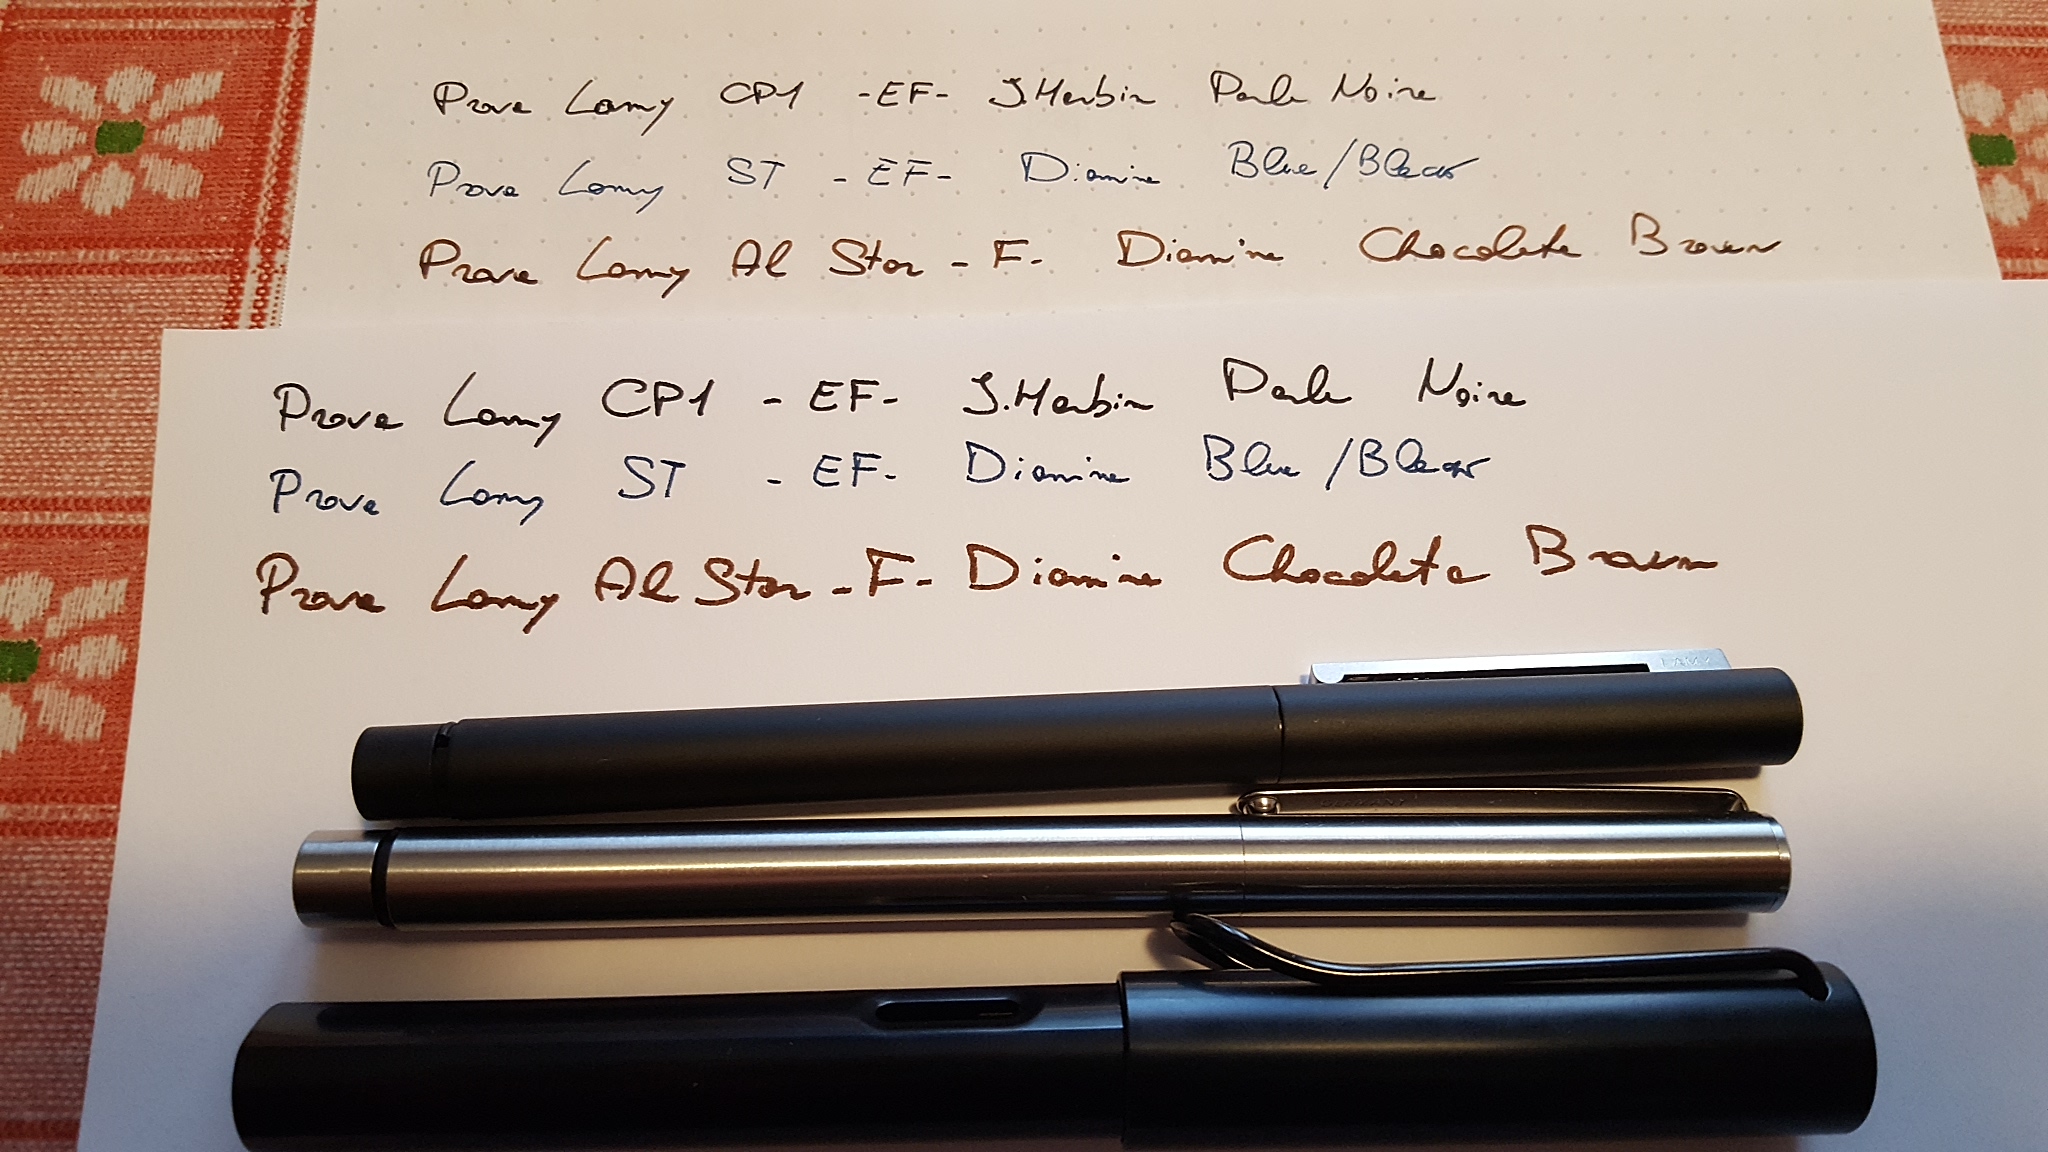 Prova Lamy CP1 -EF- J.Herbin Perle Noire
Prova Lamy ST -EF- Diamine Blue/Black
Prova Lamy Al Star -F- Diamine Chocolate Brown
Prova Lamy CP1 -EF- J.Herbin Perle Noire
Prova Lamy ST -EF- Diamine Blue/Black
Prova Lamy Al Star -F- Diamine Chocolate Brown
LAMY